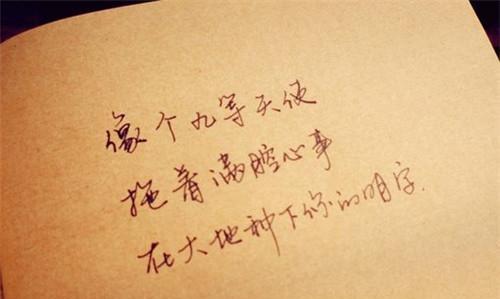 像个九等天使
拖着满腔心事
在大地种下你的名字.